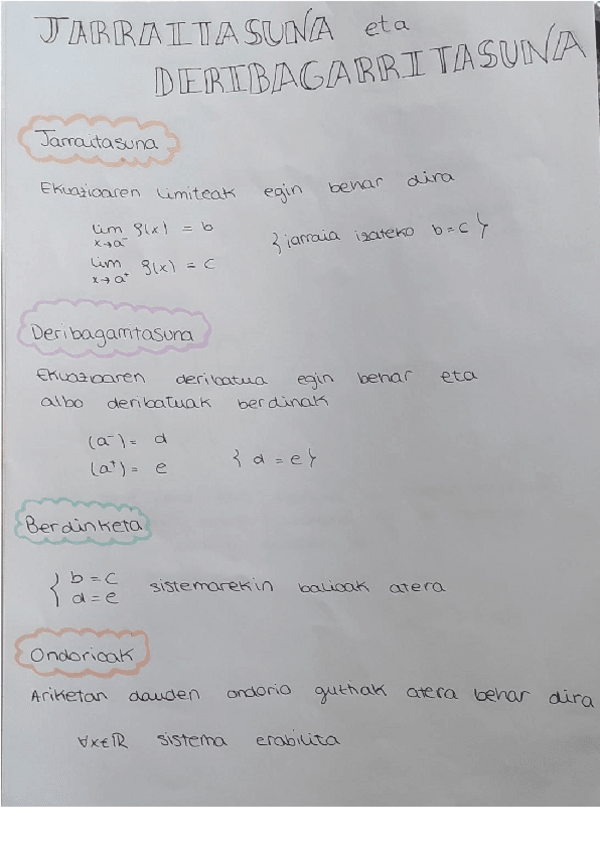 JARRAITASUNA eta
DERIBAGARRITASUNA
Jarraitasuna
Ekuazioaren limiteak egin behar dira
lim f(x) = b
x→a⁻
{jarraia izateko b=c}
lim f(x) = c
x→a⁺
Deribagarritasuna
Ekuazioaren deribatua egin behar eta
albo deribatuak berdinak
(a⁻) = d
(a⁺) = e
{d = e}
Berdinketa
{ b = c
d = e
sistemarekin balioak atera
Ondorioak
Ariketan dauden ondorio guztiak atera behar dira
∀x∈ℝ sistema erabilita